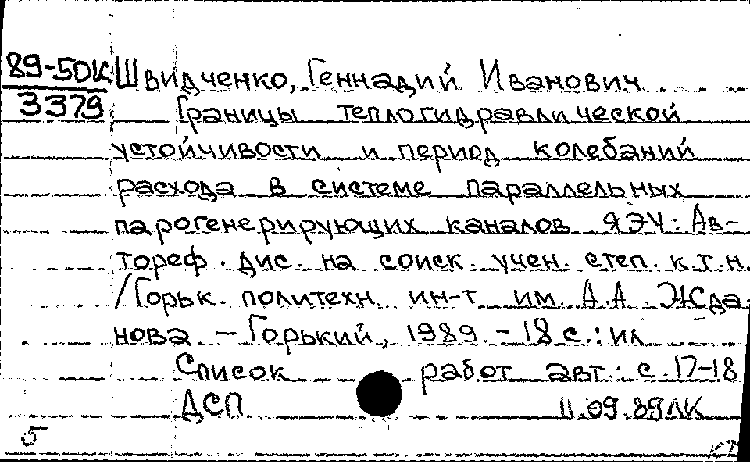 89-50К Швидченко, Геннадий Иванович
3379 Границы теплогидравлической
устойчивости и период колебаний
расхода в системе параллельных
парогенерирующих каналов ЯЭУ: Ав-
тореф. дис. на соиск. учен. степ. к.т.н.
/Горьк. политехн. ин-т им. А.А. Жда
нова. - Горький, 1989. - 18 с.: ил
Список работ авт.: с. 17-18
ДСП 11.09.89ЛК
5